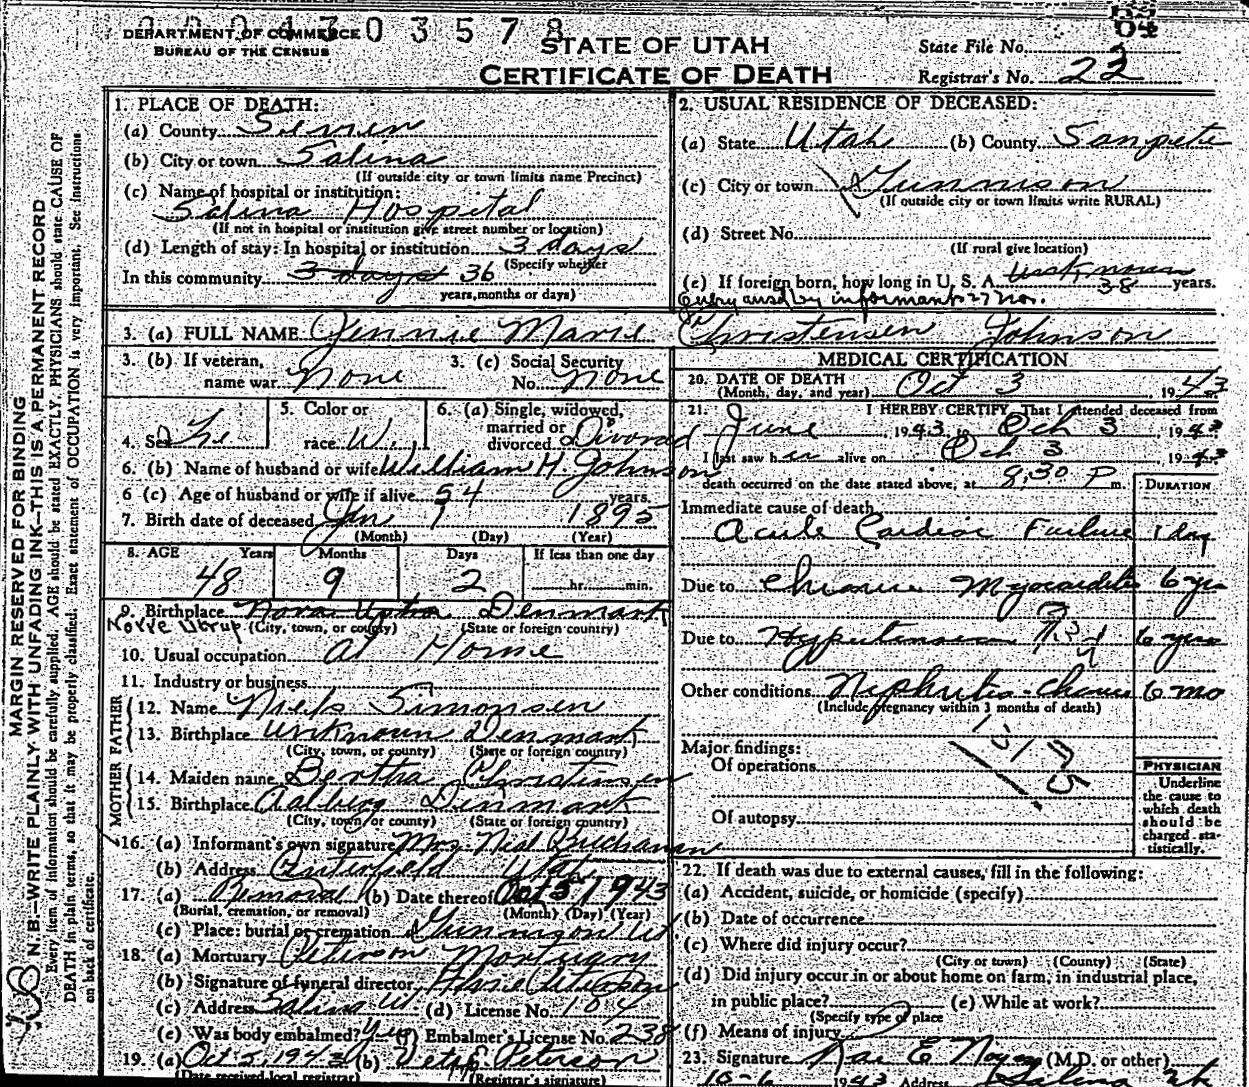 2004703578
DEPARTMENT OF COMMERCE
BUREAU OF THE CENSUS
STATE OF UTAH
CERTIFICATE OF DEATH
State File No.
Registrar's No. 22
MARGIN RESERVED FOR BINDING
N. B.—WRITE PLAINLY WITH UNFADING INK—THIS IS A PERMANENT RECORD
Every item of information should be carefully supplied. AGE should be stated EXACTLY. PHYSICIANS should state CAUSE OF
DEATH in plain terms, so that it may be properly classified. Exact statement of OCCUPATION is very important. See Instructions
on back of certificate.
1. PLACE OF DEATH:
(a) County Sevier
(b) City or town Salina
(If outside city or town limits name Precinct)
(c) Name of hospital or institution:
Salina Hospital
(If not in hospital or institution give street number or location)
(d) Length of stay: In hospital or institution 3 days
(Specify whether
In this community 3 days 36
years, months or days)
2. USUAL RESIDENCE OF DECEASED:
(a) State Utah (b) County Sanpete
(c) City or town Gunnison
(If outside city or town limits write RURAL)
(d) Street No.
(If rural give location)
(e) If foreign born, how long in U. S. A. Unknown years.
38
Query ansd by informant
3. (a) FULL NAME Jennie Marie Christensen Johnson
3. (b) If veteran,
name war None
3. (c) Social Security
No. None
4. Sex Fe
5. Color or
race W.
6. (a) Single, widowed,
married or
divorced Divorced
6. (b) Name of husband or wife William H. Johnson
6 (c) Age of husband or wife if alive 54 years.
7. Birth date of deceased Jan 1 1895
(Month) (Day) (Year)
8. AGE Years Months Days If less than one day
48 9 2 hr. min.
9. Birthplace Nora Uptra Denmark
Norre Utrup (City, town, or county) (State or foreign country)
10. Usual occupation at Home
11. Industry or business
FATHER
12. Name Niels Simonsen
13. Birthplace Unknown Denmark
(City, town, or county) (State or foreign country)
MOTHER
14. Maiden name Bertha Christensen
15. Birthplace Aalborg Denmark
(City, town, or county) (State or foreign country)
16. (a) Informant's own signature Mrs. Neal Buchanan
(b) Address Centerfield Utah
17. (a) Removal (b) Date thereof Oct 5 1943
(Burial, cremation, or removal) (Month) (Day) (Year)
(c) Place: burial or cremation Gunnison Ut
18. (a) Mortuary Peterson Mortuary
(b) Signature of funeral director
(c) Address Salina Ut (d) License No. 104
(e) Was body embalmed? Yes (f) Embalmer's License No. 238
19. (a) Oct 5, 1943 (b) Peterson
(Date received local registrar) (Registrar's signature)
MEDICAL CERTIFICATION
20. DATE OF DEATH
(Month, day, and year) Oct 3, 1943
21. I HEREBY CERTIFY That I attended deceased from
June, 1943 to Oct 3, 1943
I last saw her alive on Oct 3 1943
death occurred on the date stated above, at 8:30 P m.
DURATION
Immediate cause of death
Acute Cardiac Failure 1 day
Due to Chronic Myocarditis 6 yrs
Due to Hypertension 6 years
Other conditions Nephritis-Chronic 6 mo
(Include pregnancy within 3 months of death)
131
Major findings:
Of operations
Of autopsy
PHYSICIAN
Underline
the cause to
which death
should be
charged sta-
tistically.
22. If death was due to external causes, fill in the following:
(a) Accident, suicide, or homicide (specify)
(b) Date of occurrence
(c) Where did injury occur?
(City or town) (County) (State)
(d) Did injury occur in or about home on farm, in industrial place,
in public place? (e) While at work?
(Specify type of place
(f) Means of injury
23. Signature Rae E Noyes (M.D. or other)
10-6 1943 Address Salina